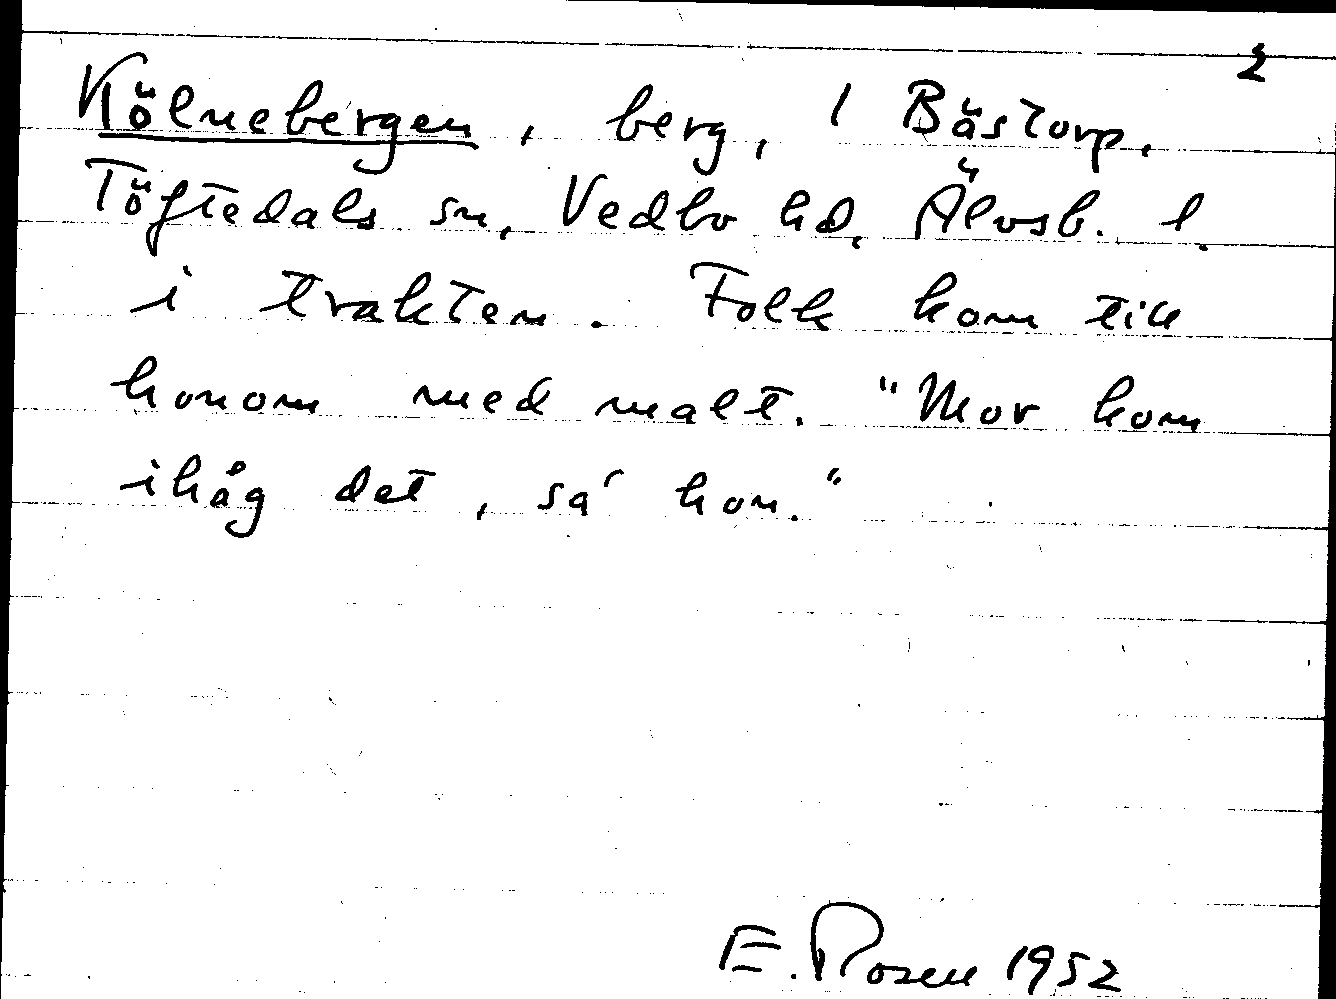 2
Kölnebergen, berg, 1 Bästorp,
Töftedals sn, Vedbo hd, Älvsb. l.
i trakten. Folk kom till
honom med malt. "Mor kom
ihåg det, sa' hon."
E. Rosen 1952